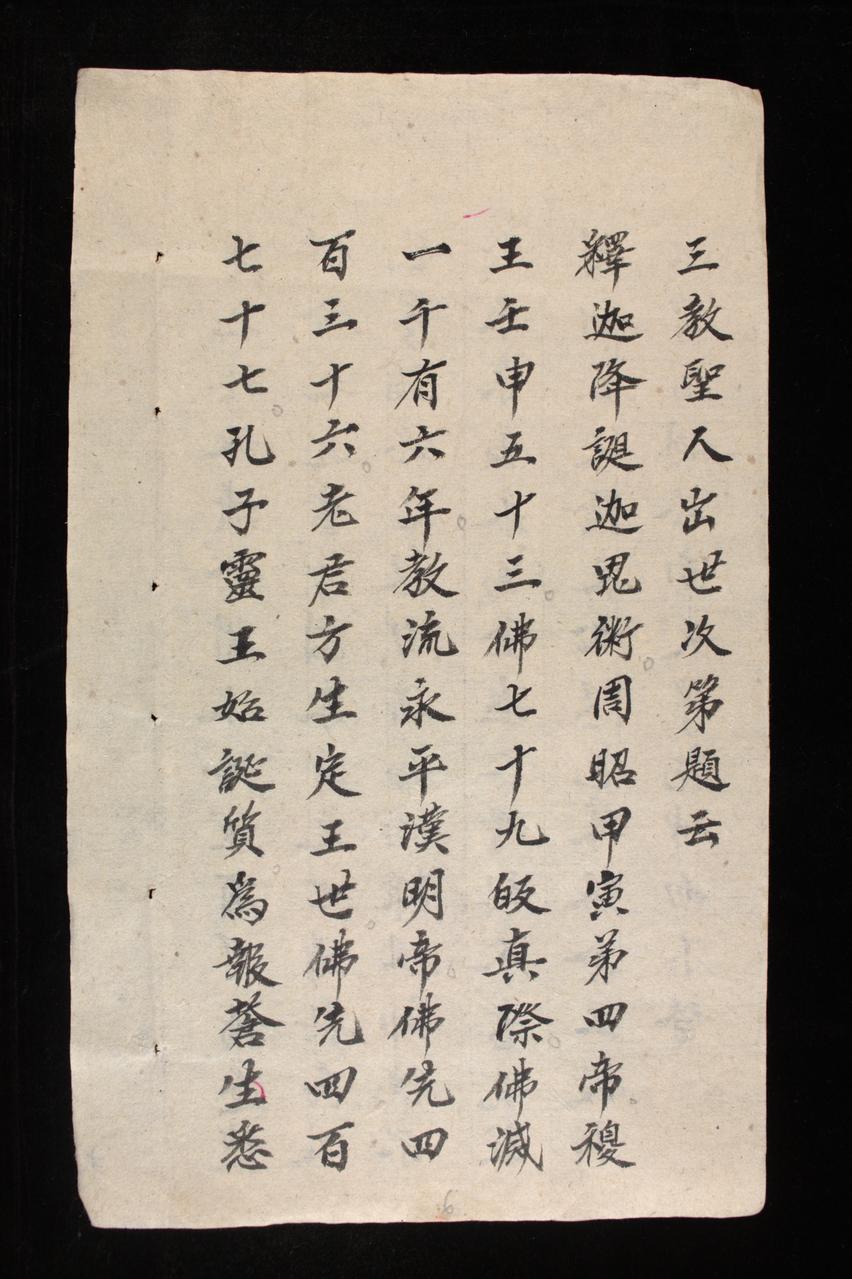 三教聖人出世次第題云
釋迦降誕迦毘術周昭甲寅第四帝穆
王壬申五十三佛七十九皈真際佛滅
一千有六年教流永平漢明帝佛先四
百三十六老君方生定王世佛先四百
七十七孔子靈王始誕質為報蒼生悉